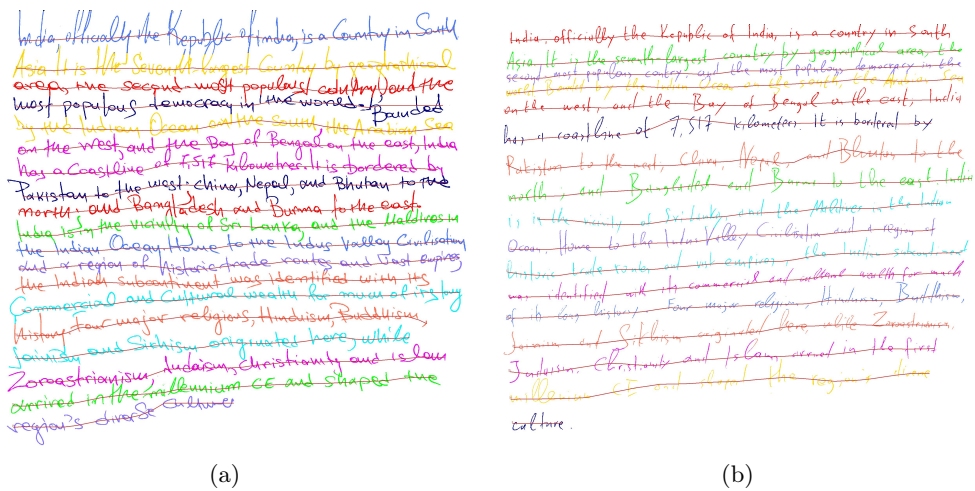 India, officially the Republic of India, is a Country in South
Asia It is the Seventh largest Country by geographical
area, the second most populous country, and the
most populous democracy in the world. Bounded
by the Indian Ocean on the South, the Arabian Sea
on the West, and the Bay of Bengal on the east, India
has a Coastline of 7,517 kilometres It is bordered by
Pakistan to the west. china, Nepal, and Bhutan to the
north and Bangladesh and Burma to the east.
India is in the vicinity of Sri Lanka, and the Maldives in
the Indian Ocean Home to the Indus Valley Civilisation
and a region of historic trade routes and Vast empires,
the Indian subcontinent was identified with its
Commercial and Cultural wealth for much of its long
History Four major religions, Hinduism, Buddhism,
Jainism and Sikhism originated here, while
Zoroastrianism, Judaism, Christianity and islam
arrived in the millennium CE and Shapes the
region's diverse Culture
(a)
India, officially the Republic of India, is a country in South
Asia. It is the seventh largest country by geographical area, the
second most populous country, and the most populous democracy in the
Indian Ocean
on the west, and the Bay of Bengal on the east, India
has a coastline of 7,517 kilometers. It is bordered by
Pakistan to the west, China, Nepal, and Bhutan to the
north and Bangladesh and Burma to the east India
is in the vicinity of Sri Lanka, and the in the
Ocean. Home to the Indus Valley Civilisation and a region of
historic trade routes and vast empires, the Indian subcontinent
was identified with its commercial and cultural wealth for much
of its long history. Four major religions, Hinduism, Buddhism,
Jainism and Sikhism originated here, while Zoroastrianism,
Judaism, Christianity and Islam arrived in the first
millennium CE and shaped the region's diverse
culture.
(b)